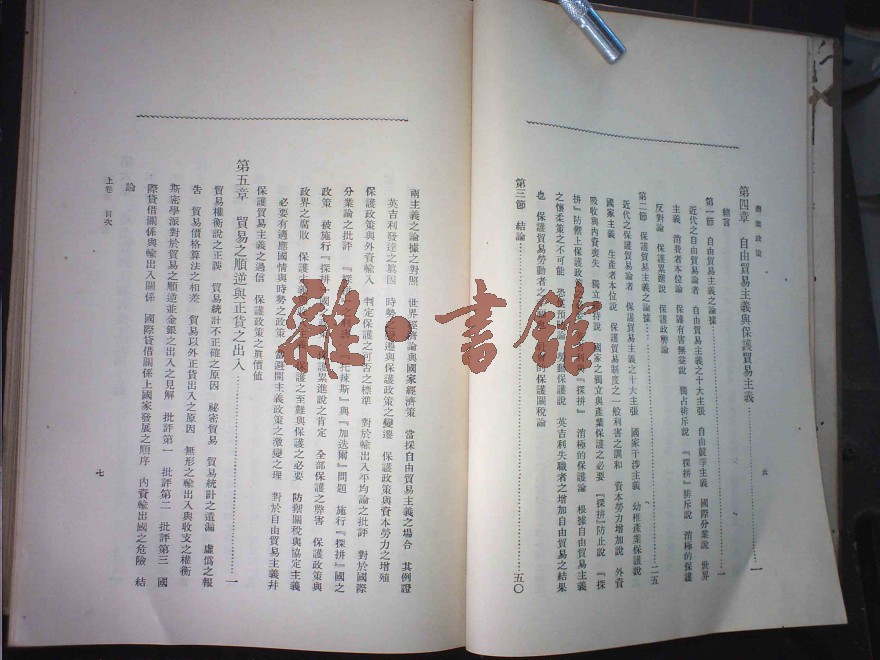 商業政策
第四章 自由貿易主義與保護貿易主義……一
緒言
第一節 自由貿易主義之論據……一
近代之自由貿易論者 自由貿易主義之十大主張 自由競爭主義 國際分業說 世界
主義 消費者本位論 保護有害無益說 獨占排斥說 『探拼』排斥說 消極的保護
反對論 保護累進說 保護政弊論
第二節 保護貿易主義之論據……二五
近代之保護貿易論者 保護貿易主義之十大主張 國家干涉主義 幼稚產業保護說
國家主義 生產者本位說 保護貿易制度之一般利害之調和 資本勞力增加說 外資
吸收與內資喪失 獨立 持說 國家之獨立與產業保護之必要 『探拼』防止說 『探
拼』防禦上保護政 利與『探拼』 消極的保護論 根據自由貿易主義
之懷柔策之不可能 恐 預 勞動保護說 英吉利失職者之增加自由貿易之結果
也 保護貿易勞動者之 的保護關稅論
第三節 結論……五〇
兩主義之論據之對照 世界經濟論與國家經濟策 當採自由貿易主義之場合 其例證
英吉利發達之真因 時勢之 遷與保護政策之變遷 保護政策與資本勞力之增殖
保護政策與外資輸入 判定保護之可否之標準 對於輸出入平均論之批評 對於國際
分業論之批評 『探 『托辣斯』與『加迭爾』問題 施行『探拼』國之
政策 被施行『探拼』國 保護累進說之肯定 全部保護之弊害 保護政策與
政界之腐敗 保護主義 保護之至難與保護之必要 防禦關稅與協定主義
必要有適應國情與時勢之政策 當避開主義政策之激變之理 對於自由貿易主義幷
保護貿易主義之過信 保護政策之真價值
第五章 貿易之順逆與正貨之出入……一
貿易權衡說之正誤 貿易統計不正確之原因 祕密貿易 貿易統計之遺漏 虛偽之報
告 貿易價格算法之相差 貿易以外正貨出入之原因 無形之輸出入與收支之權衡
斯密學派對於貿易之順逆並金銀之出入之見解 批評第一 批評第二 批評第三 國
際貸借關係與輸出入關係 國際貸借關係上國家發展之順序 內資輸出國之危險 結
論
上卷 目次
七
雜·書館